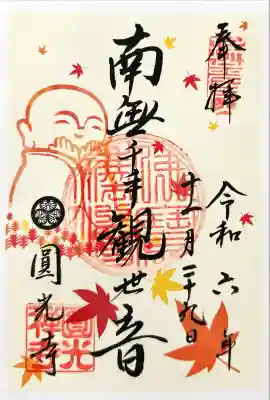 奉拝
令和六年
十一月二十九日
南無千手観世音
圓光寺
圓光禅寺